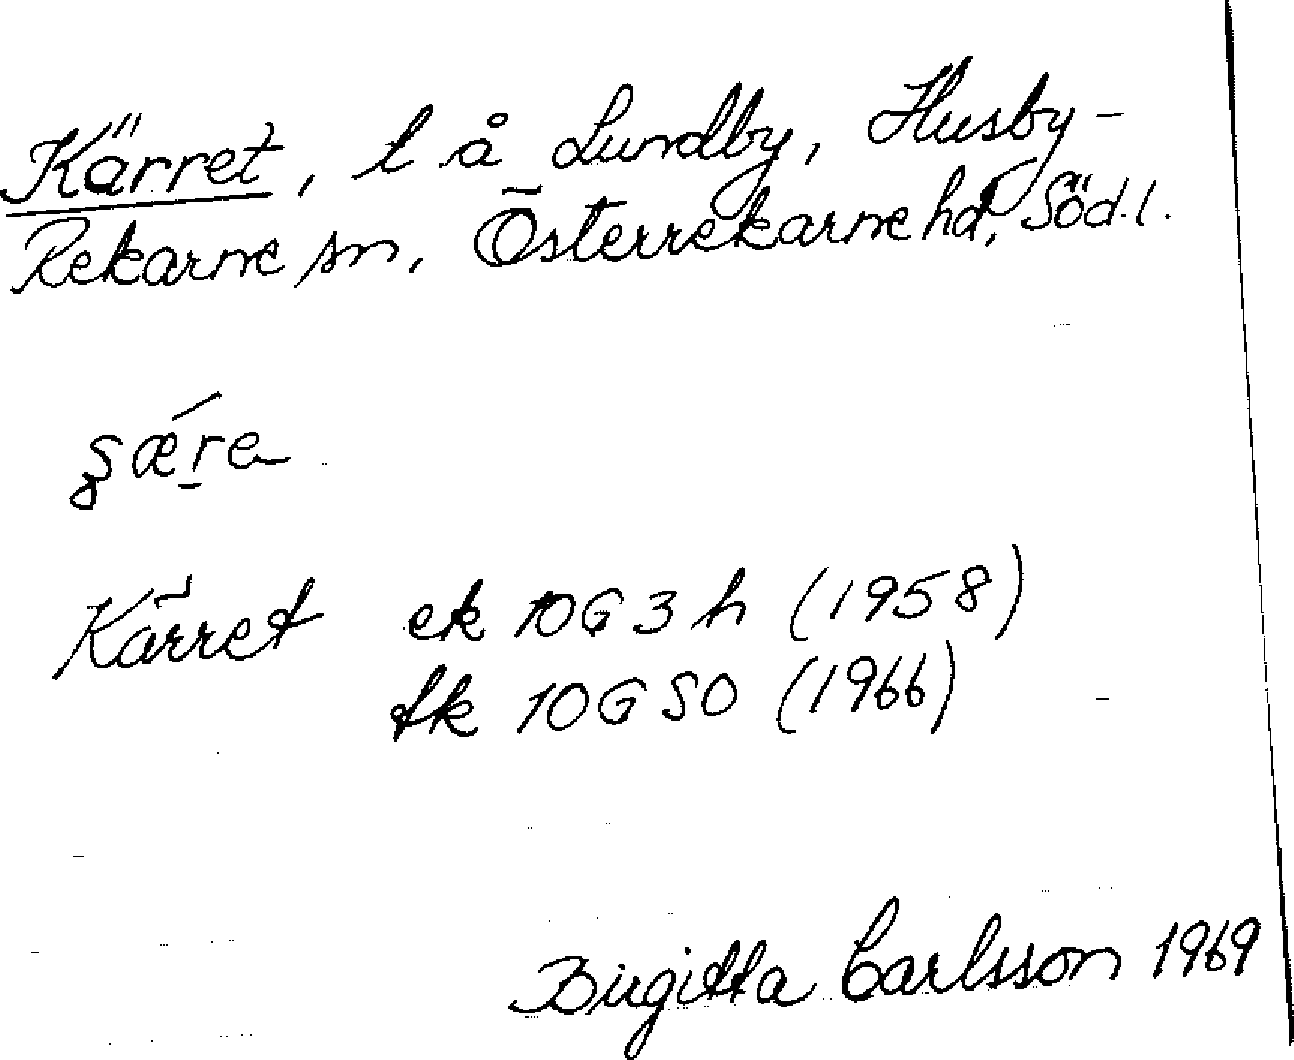 Kärret, l å Lundby, Husby-
Rekarne sn, Österrekarne hd, Söd.l.
Kärret ek 10G 3 h (1958)
tk 10G SO (1966)
Birgitta Carlsson 1969